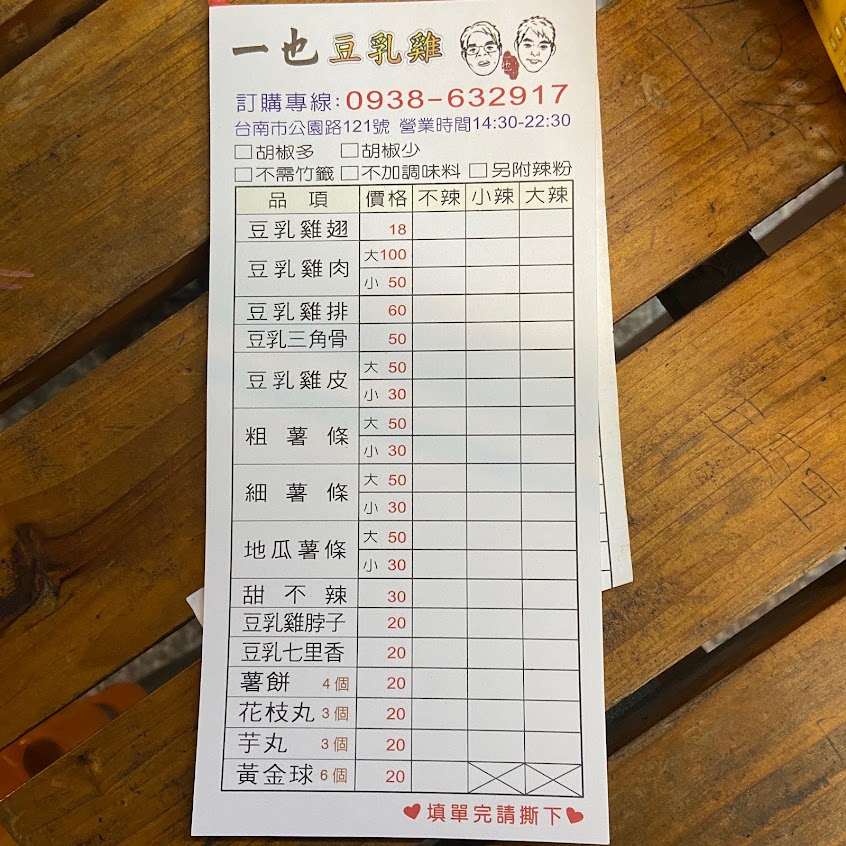 一也豆乳雞
訂購專線:0938-632917
台南市公園路121號 營業時間14:30-22:30
□胡椒多 □胡椒少
□不需竹籤 □不加調味料 □另附辣粉
品項 價格 不辣 小辣 大辣
豆乳雞翅 18
豆乳雞肉 大100
小 50
豆乳雞排 60
豆乳三角骨 50
豆乳雞皮 大 50
小 30
粗薯條 大 50
小 30
細薯條 大 50
小 30
地瓜薯條 大 50
小 30
甜不辣 30
豆乳雞脖子 20
豆乳七里香 20
薯餅 4個 20
花枝丸 3個 20
芋丸 3個 20
黃金球 6個 20
♥填單完請撕下♥